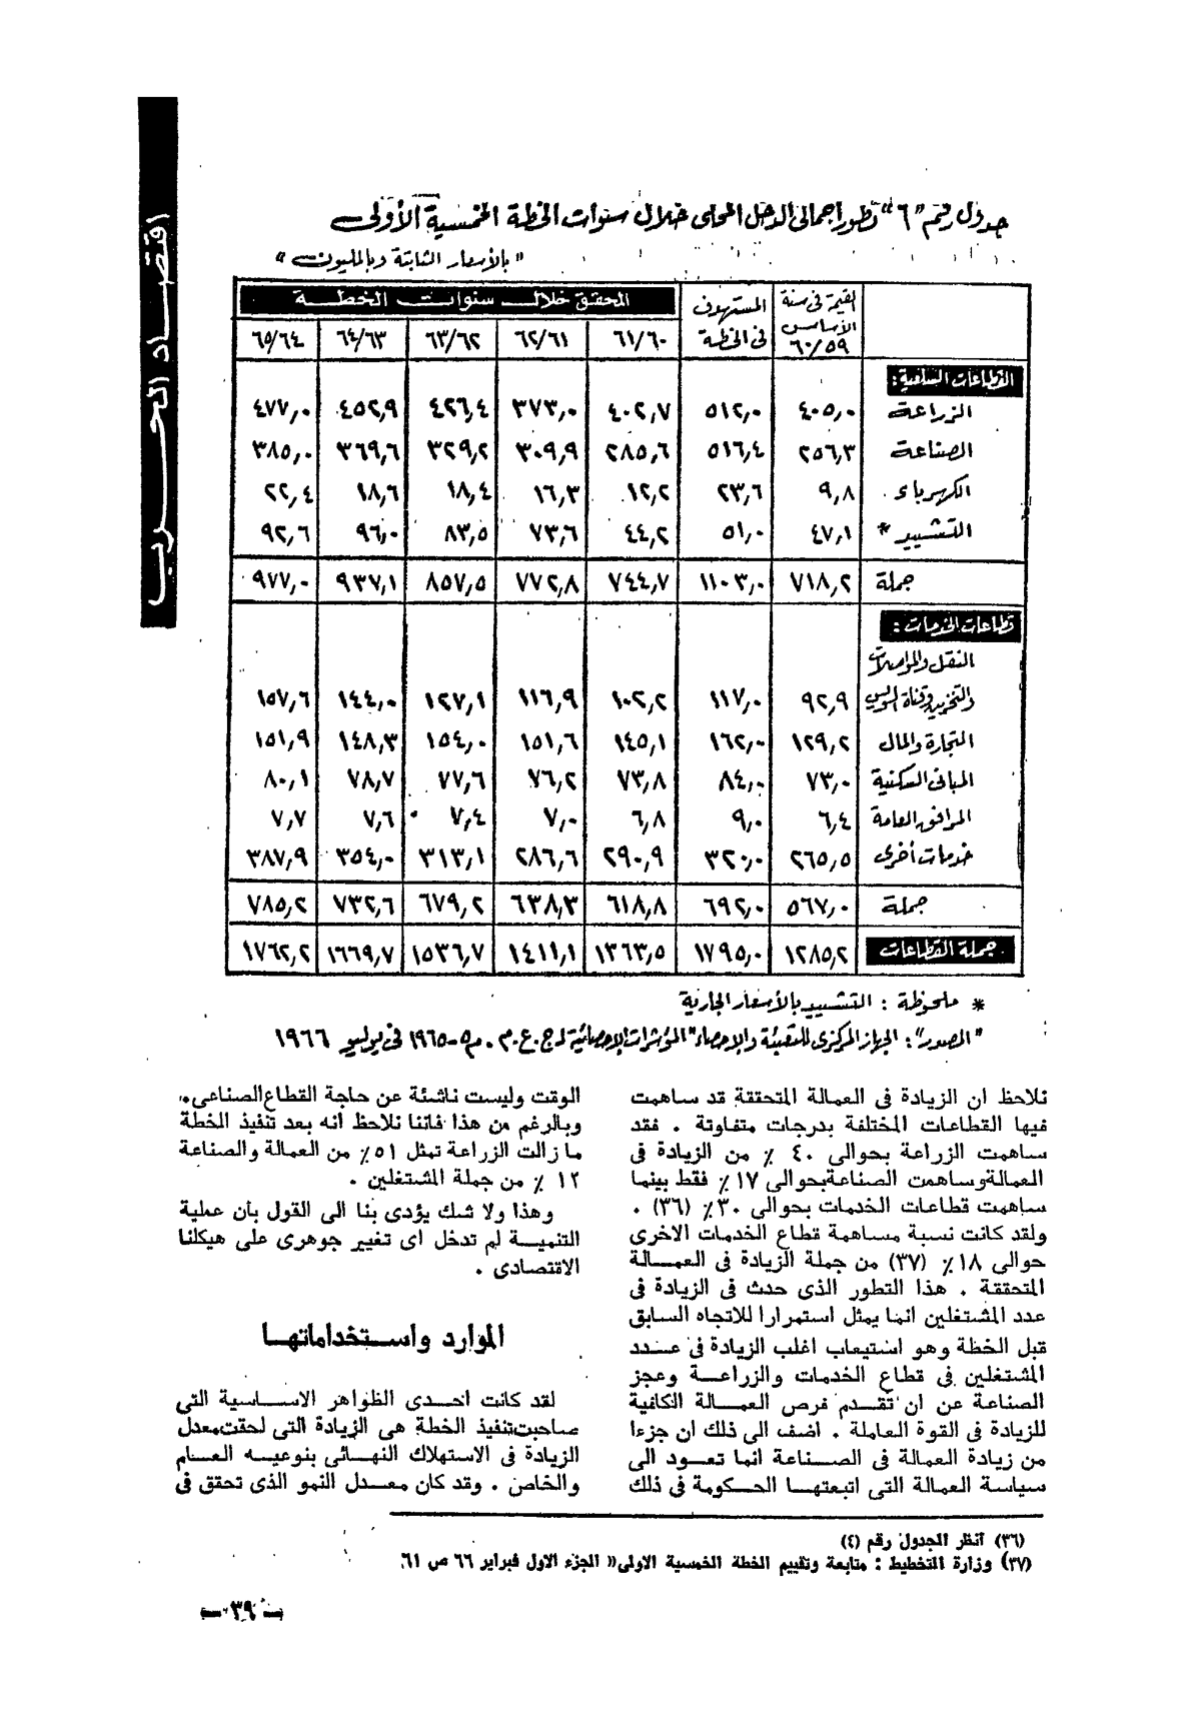 اقتصاد الحرب
جدول رقم "٦" تطور اجمالى الدخل المحلى خلال سنوات الخطة الخمسية الأولى
"بالأسعار الثابتة وبالمليون"
القيمة فى سنة الأساس ٦٠/٥٩ | المستهدف فى الخطة | المحقق خلال سنوات الخطة
٦١/٦٠ | ٦٢/٦١ | ٦٣/٦٢ | ٦٤/٦٣ | ٦٥/٦٤
القطاعات السلعية :
الزراعة | ٤٠٥,٠ | ٥١٢,٠ | ٤٠٢,٧ | ٣٧٣,٠ | ٤٢٦,٤ | ٤٥٢,٩ | ٤٧٧,٠
الصناعة | ٢٥٦,٣ | ٥١٦,٤ | ٢٨٥,٦ | ٣٠٩,٩ | ٣٢٩,٢ | ٣٦٩,٦ | ٣٨٥,٠
الكهرباء | ٩,٨ | ٢٣,٦ | ١٢,٢ | ١٦,٣ | ١٨,٤ | ١٨,٦ | ٢٢,٤
التشييد * | ٤٧,١ | ٥١,٠ | ٤٤,٢ | ٧٣,٦ | ٨٣,٥ | ٩٦,٠ | ٩٢,٦
جملة | ٧١٨,٢ | ١١٠٣,٠ | ٧٤٤,٧ | ٧٧٢,٨ | ٨٥٧,٥ | ٩٣٧,١ | ٩٧٧,٠
قطاعات الخدمات :
النقل والمواصلات
والتخزين وقناة السويس | ٩٢,٩ | ١١٧,٠ | ١٠٢,٢ | ١١٦,٩ | ١٢٧,١ | ١٤٤,٠ | ١٥٧,٦
التجارة والمال | ١٢٩,٢ | ١٦٢,٠ | ١٤٥,١ | ١٥١,٦ | ١٥٤,٠ | ١٤٨,٣ | ١٥١,٩
المبانى السكنية | ٧٣,٠ | ٨٤,٠ | ٧٣,٨ | ٧٦,٢ | ٧٧,٦ | ٧٨,٧ | ٨٠,١
المرافق العامة | ٦,٤ | ٩,٠ | ٦,٨ | ٧,٠ | ٧,٤ | ٧,٦ | ٧,٧
خدمات أخرى | ٢٦٥,٥ | ٣٢٠,٠ | ٢٩٠,٩ | ٢٨٦,٦ | ٣١٣,١ | ٣٥٤,٠ | ٣٨٧,٩
جملة | ٥٦٧,٠ | ٦٩٢,٠ | ٦١٨,٨ | ٦٣٨,٣ | ٦٧٩,٢ | ٧٣٢,٦ | ٧٨٥,٢
جملة القطاعات | ١٢٨٥,٢ | ١٧٩٥,٠ | ١٣٦٣,٥ | ١٤١١,١ | ١٥٣٦,٧ | ١٦٦٩,٧ | ١٧٦٢,٢
* ملحوظة : التشييد بالأسعار الجارية
"المصدر" : الجهاز المركزى للتعبئة والإحصاء "المؤشرات الإحصائية ل ج . ع . م . ٥٢-١٩٦٥ فى يوليو ١٩٦٦
نلاحظ ان الزيادة فى العمالة المتحققة قد ساهمت
فيها القطاعات المختلفة بدرجات متفاوتة . فقد
ساهمت الزراعة بحوالى ٤٠ ٪ من الزيادة فى
العمالة وساهمت الصناعة بحوالى ١٧ ٪ فقط بينما
ساهمت قطاعات الخدمات بحوالى ٣٠ ٪ (٣٦) .
ولقد كانت نسبة مساهمة قطاع الخدمات الاخرى
حوالى ١٨ ٪ (٣٧) من جملة الزيادة فى العمالة
المتحققة . هذا التطور الذى حدث فى الزيادة فى
عدد المشتغلين انما يمثل استمرارا للاتجاه السابق
قبل الخطة وهو استيعاب اغلب الزيادة فى عدد
المشتغلين فى قطاع الخدمات والزراعة وعجز
الصناعة عن ان تقدم فرص العمالة الكافية
للزيادة فى القوة العاملة . اضف الى ذلك ان جزءا
من زيادة العمالة فى الصناعة انما تعود الى
سياسة العمالة التى اتبعتها الحكومة فى ذلك
الوقت وليست ناشئة عن حاجة القطاع الصناعى .
وبالرغم من هذا فاننا نلاحظ انه بعد تنفيذ الخطة
ما زالت الزراعة تمثل ٥١ ٪ من العمالة والصناعة
١٢ ٪ من جملة المشتغلين .
وهذا ولا شك يؤدى بنا الى القول بأن عملية
التنمية لم تدخل اى تغيير جوهرى على هيكلنا
الاقتصادى .
الموارد واستخداماتها
لقد كانت احدى الظواهر الاساسية التى
صاحبت تنفيذ الخطة هى الزيادة التى لحقت معدل
الزيادة فى الاستهلاك النهائى بنوعيه العام
والخاص . وقد كان معدل النمو الذى تحقق فى
(٣٦) أنظر الجدول رقم (٤)
(٣٧) وزارة التخطيط : متابعة وتقييم الخطة الخمسية الاولى « الجزء الاول فبراير ٦٦ ص ٦١.
ـ ٣٩ ـ